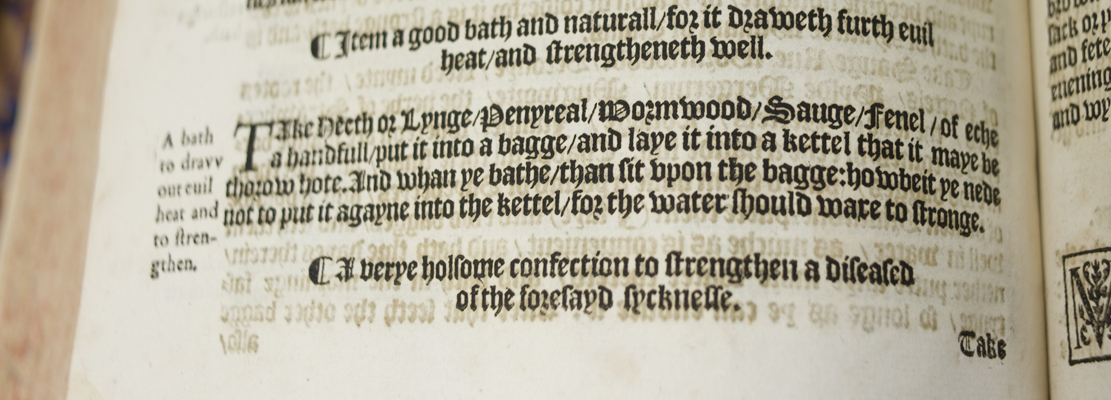 ¶ Item a good bath and naturall/for it draweth furth euil
heat/and strengtheneth well.
A bath
to dravv
out euil
heat and
to stren-
gthen.
TAke Heeth or Lynge/Penyreal/Wormwood/Sauge/Fenel/of eche
a handfull/put it into a bagge/and laye it into a kettel that it maye be
thorow hote. And whan ye bathe/than sit vpon the bagge: howbeit ye nede
not to put it agayne into the kettel/for the water should waxe to stronge.
¶ A verye holsome confection to strengthen a diseased
of the foresayd sycknesse.
Take
and fete
euening
and wy